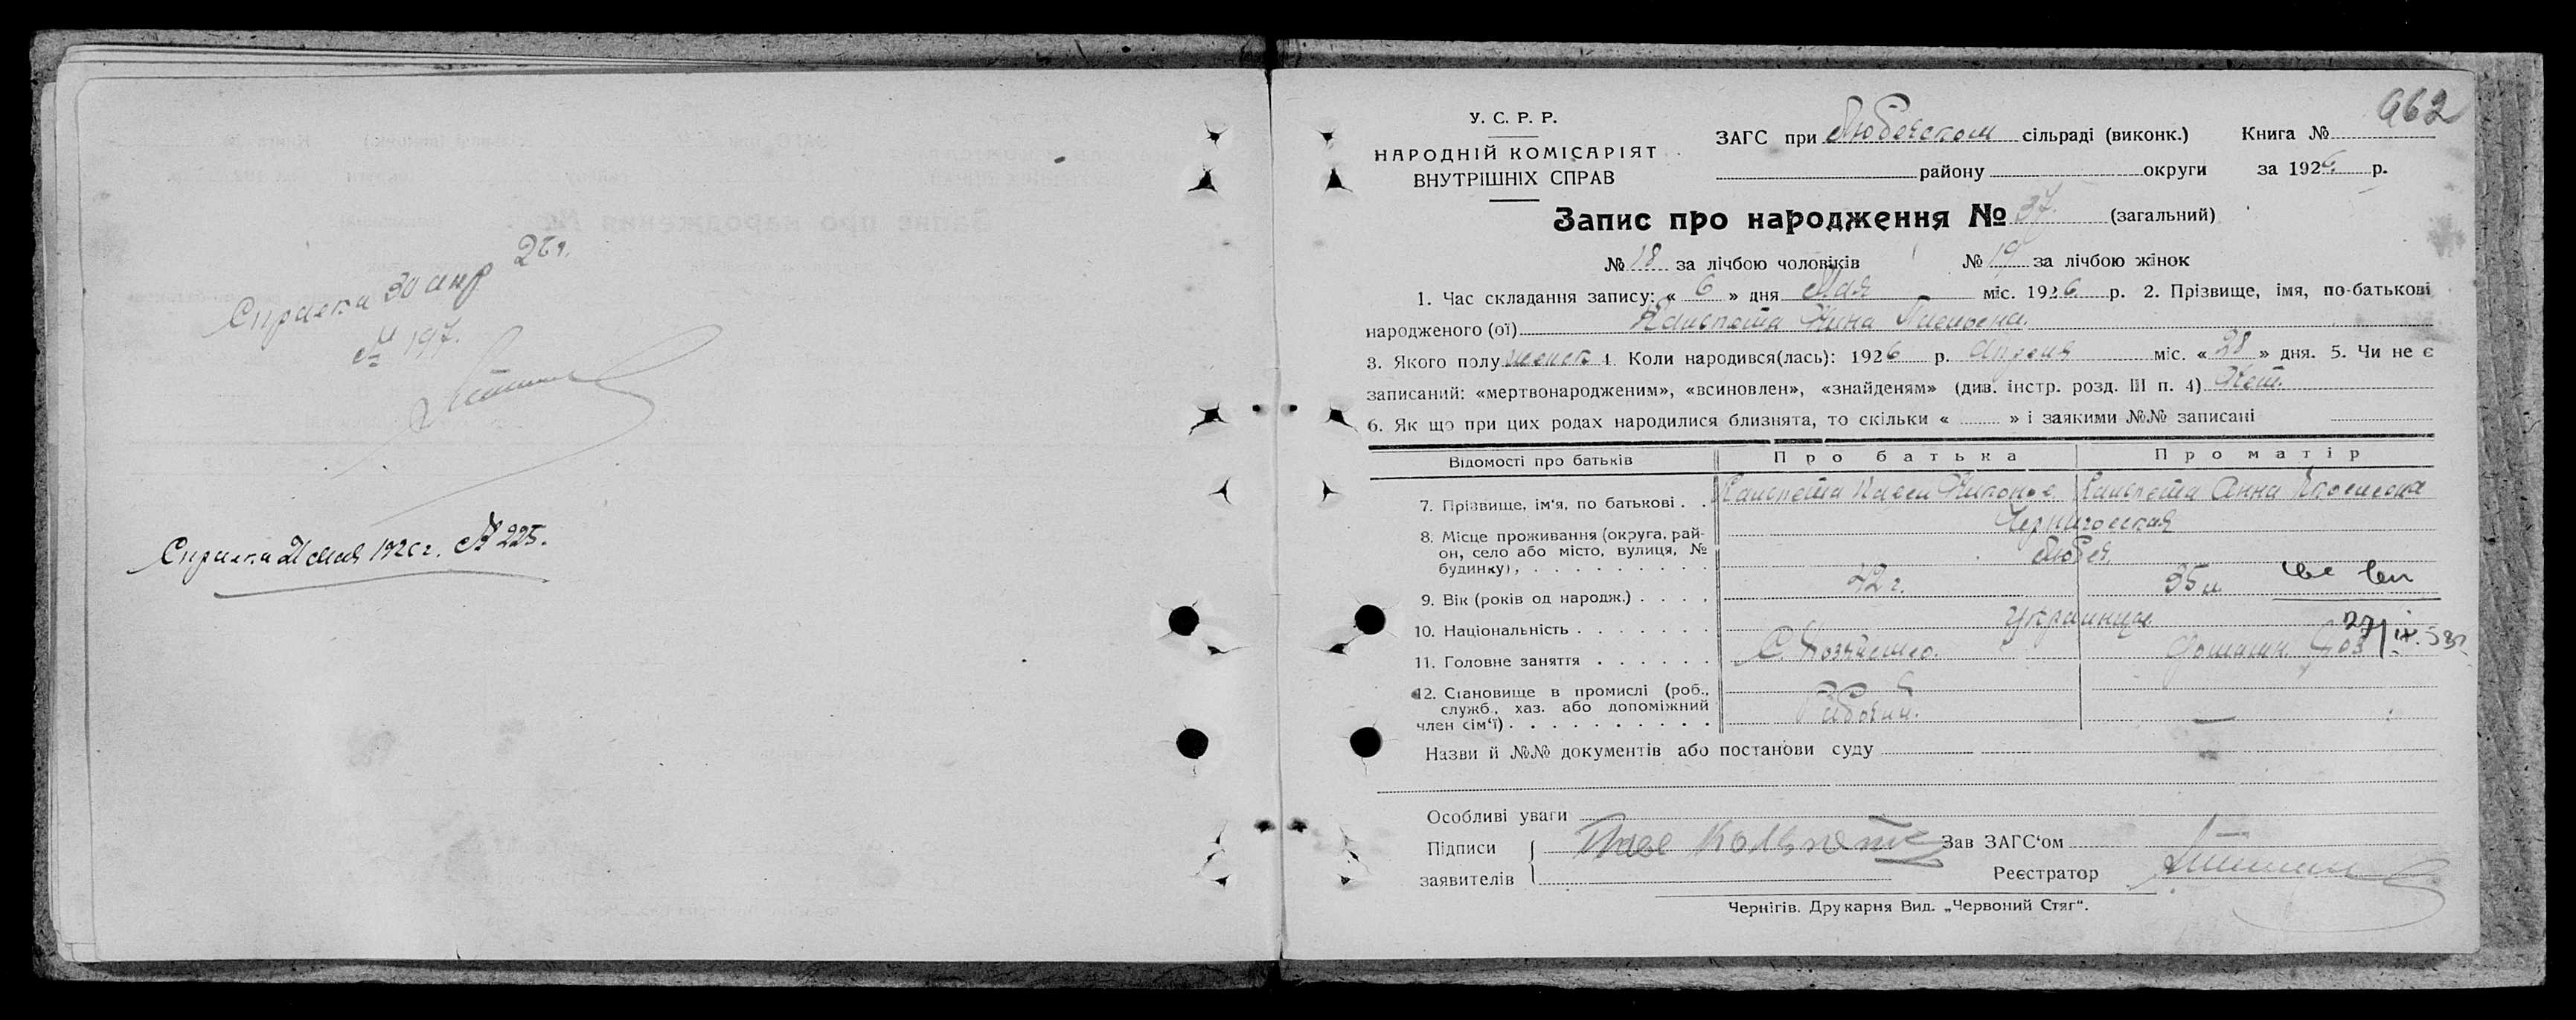 Справка 30 апр 26 г.
№ 197.
Справка 21 мая 1926 г. № 225.
962
У. С. Р. Р.
НАРОДНІЙ КОМІСАРІЯТ
ВНУТРІШНІХ СПРАВ
ЗАГС при Любечском сільраді (виконк.) Книга №
району округи за 1926 р.
Запис про народження № 37. (загальний)
№ 18 за лічбою чоловіків № 19 за лічбою жінок
1. Час складання запису: « 6 » дня Мая міс. 1926 р. 2. Прізвище, імя, по-батькові
народженого (ої) Нина
3. Якого полу женск 4. Коли народився(лась): 1926 р. Апреля міс. « 28 » дня. 5. Чи не є
записаний: «мертвонародженим», «всиновлен», «знайденям» (див. інстр. розд. III п. 4) Нет.
6. Як що при цих родах народилися близнята, то скільки « » і заякими №№ записані
Відомості про батьків Про батька Про матір
7. Прізвище, ім'я, по батькові . . Анна
8. Місце проживання (округа, рай- Черниговская
он, село або місто, вулиця, № Любеч.
будинку), . . . . . . . . .
9. Вік (років од народж.) . . . . 42 г. 35 л.
10. Національність . . . . . . . Украинцы
11. Головне заняття . . . . . . С. Хозяйство. Домашн.
12. Становище в промислі (роб.,
служб., хаз. або допоміжний
член сім'ї) . . . . . . . . . . Рабочий. —
Назви й №№ документів або постанови суду
Особливі уваги
Підписи Зав ЗАГС'ом
заявителів Реєстратор
Чернігів. Друкарня Вид. „Червоний Стяг".